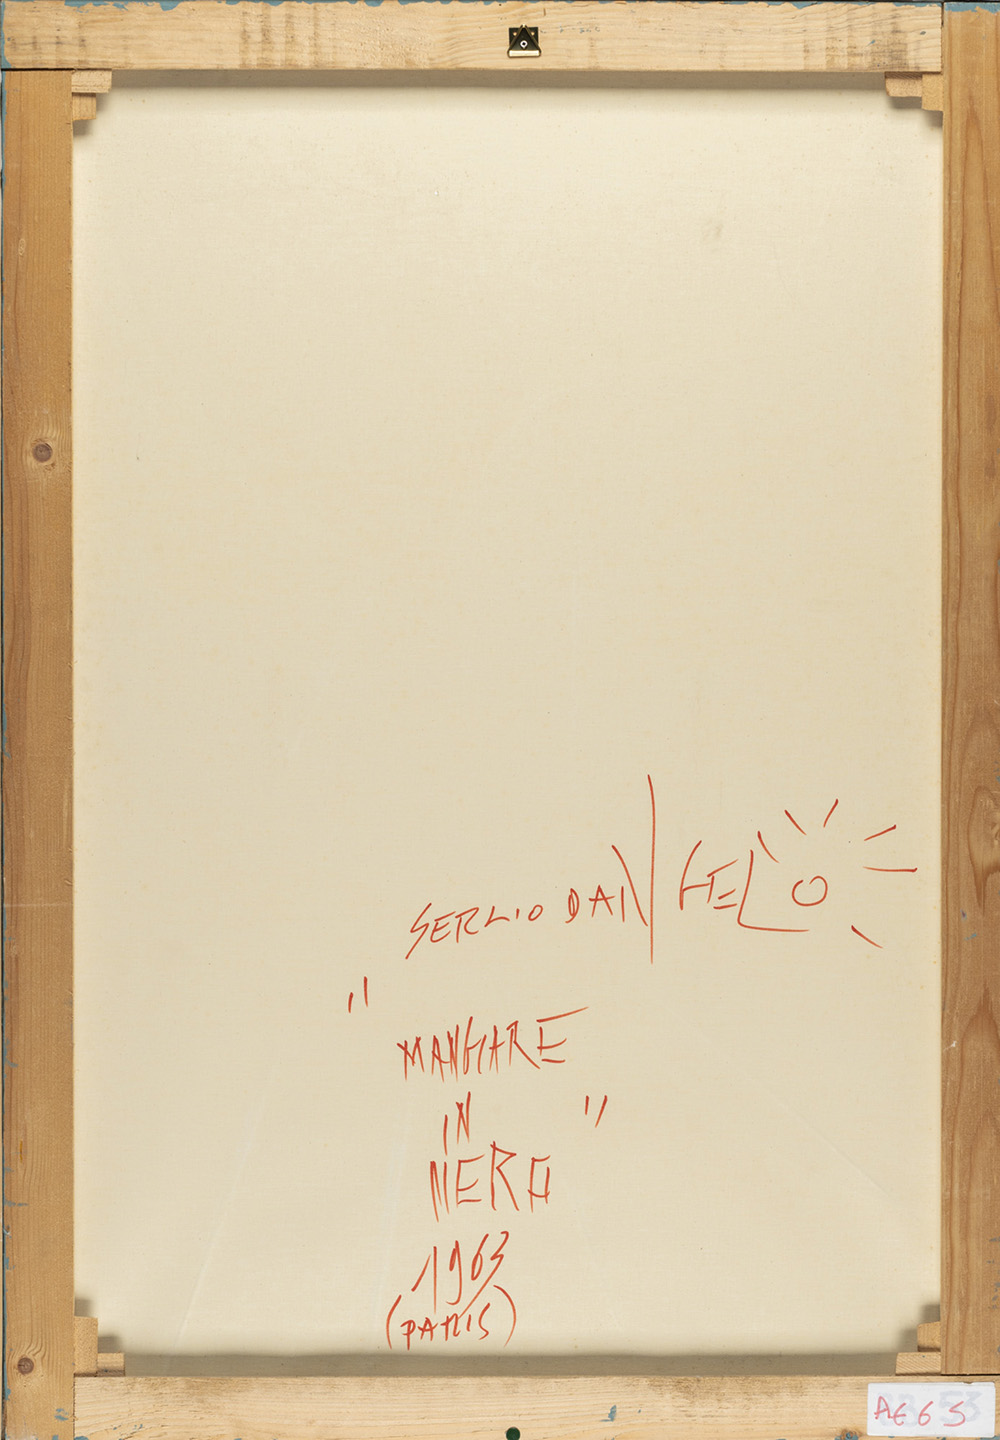 SERGIO DANGELO
"MANGIARE
IN
NERO"
1963
(PARIS)